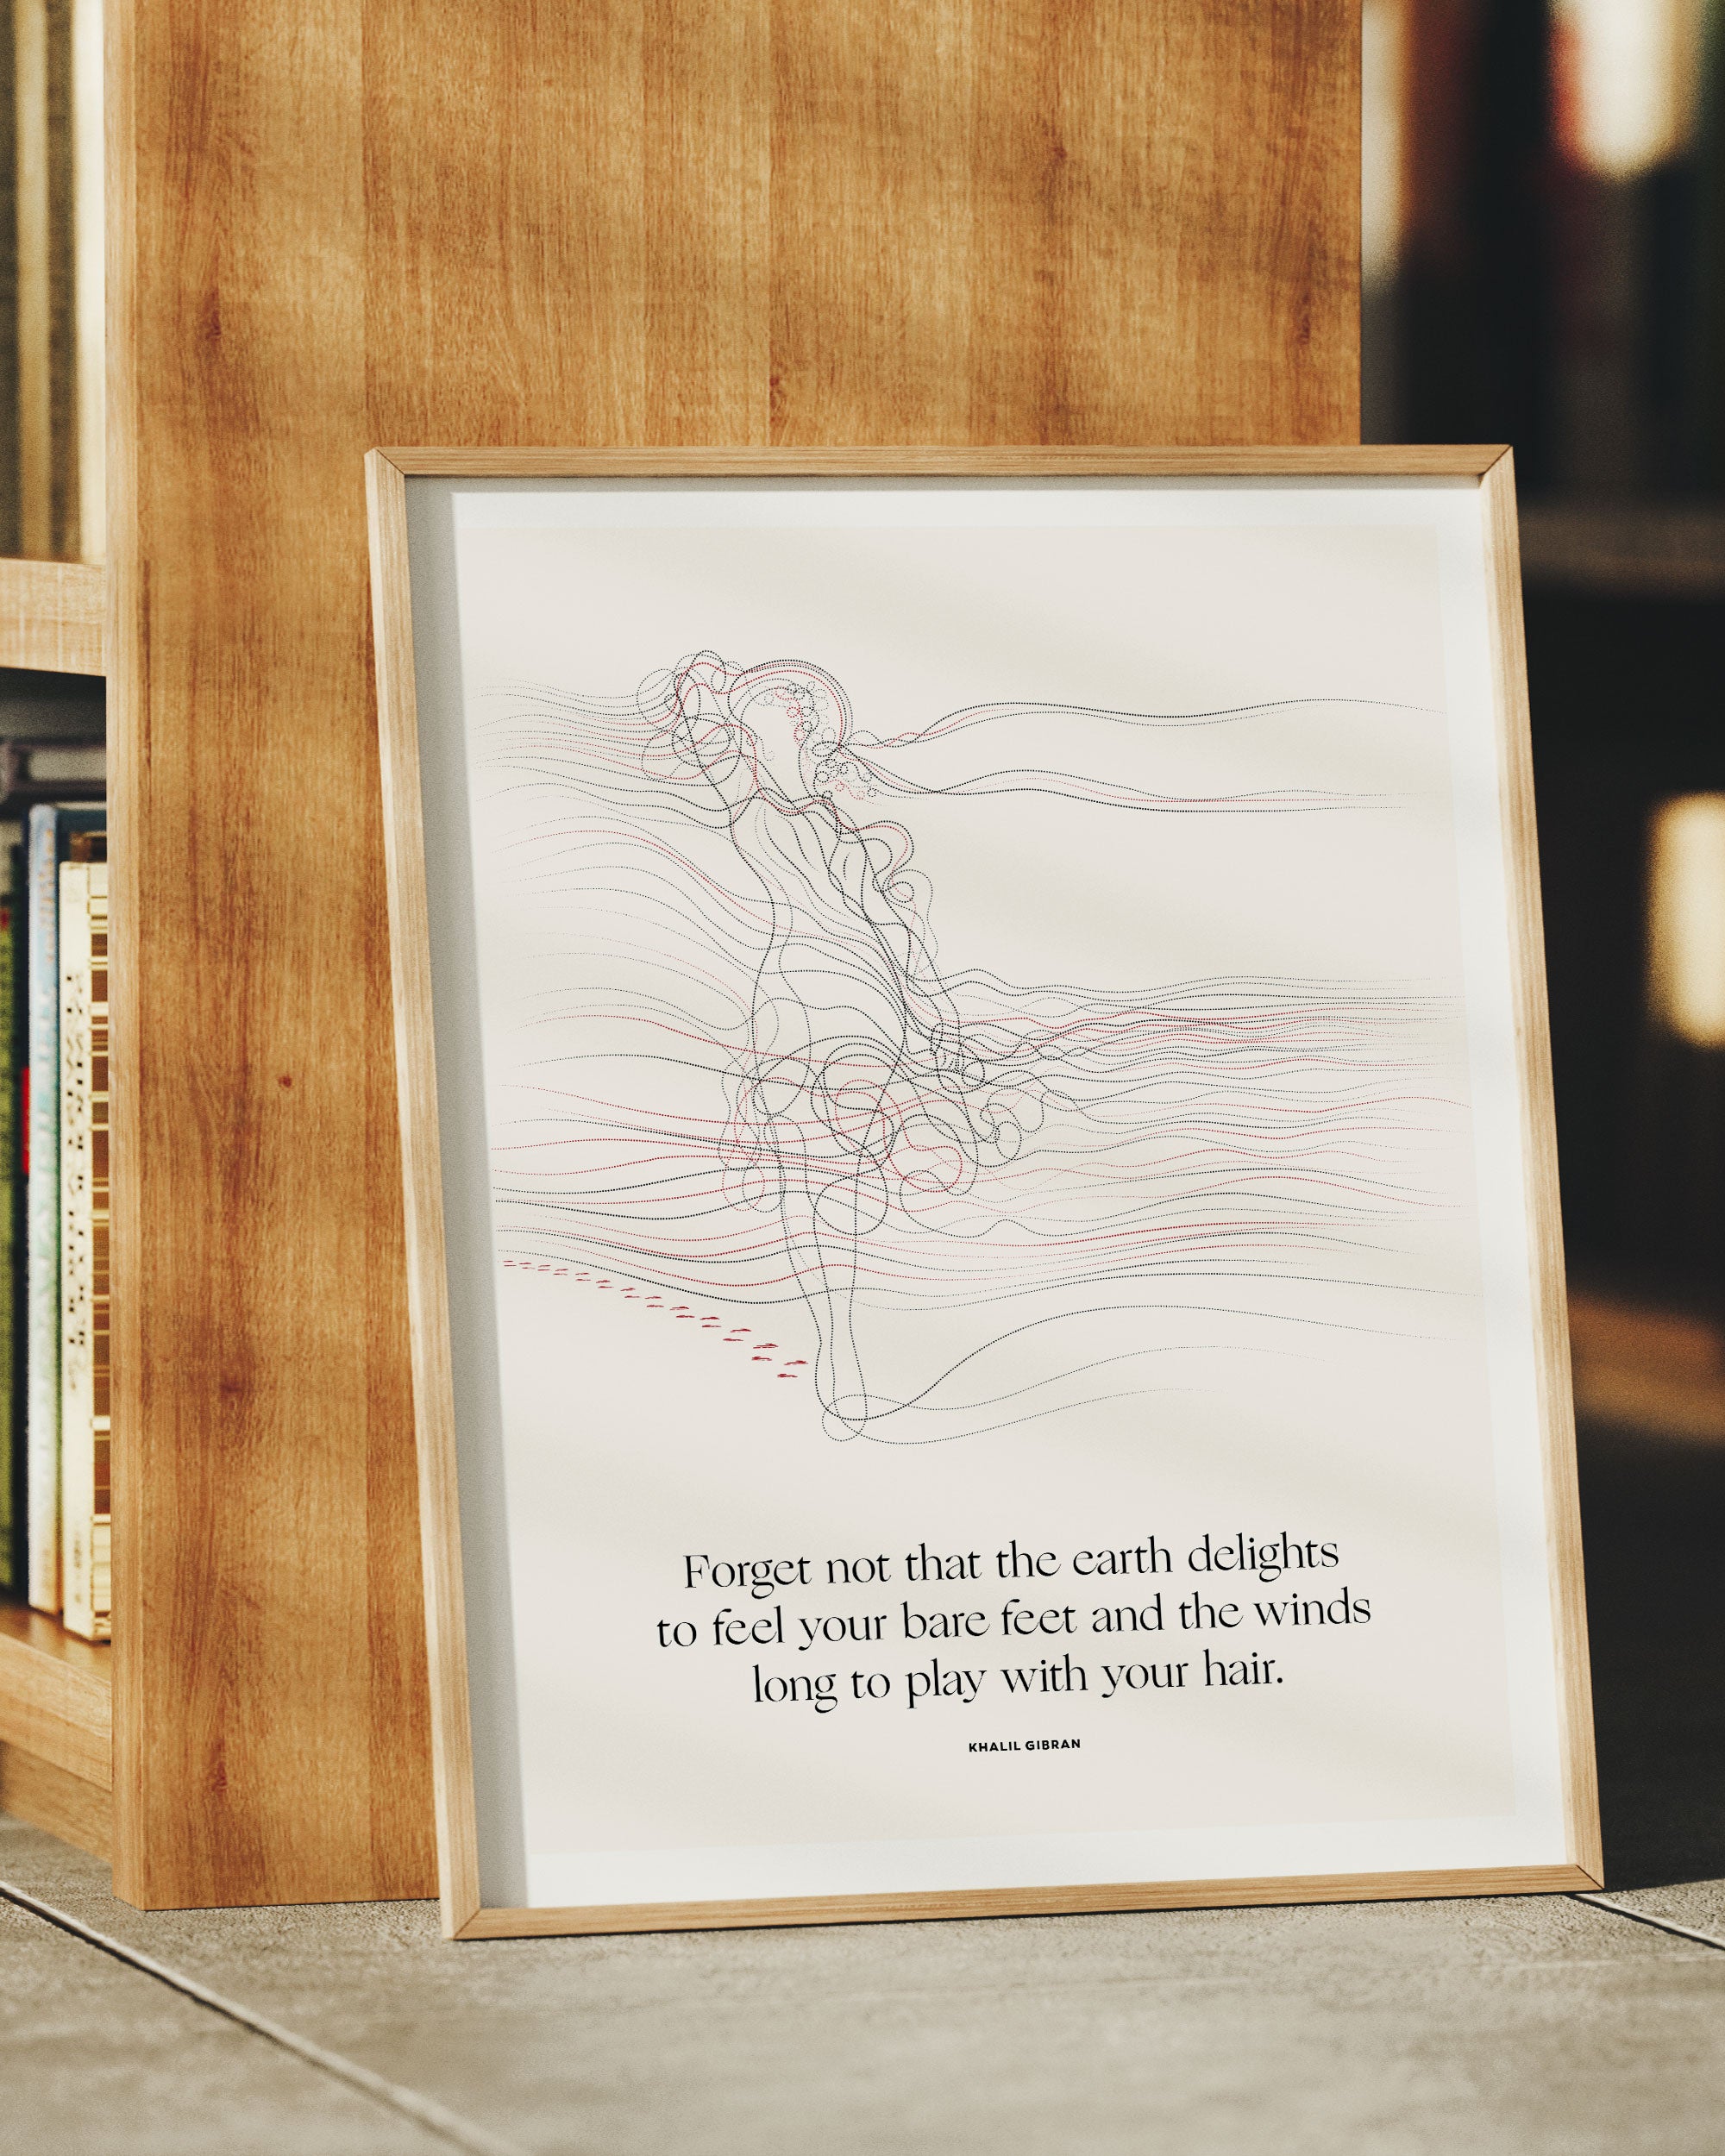 Forget not that the earth delights
to feel your bare feet and the winds
long to play with your hair.
KHALIL GIBRAN